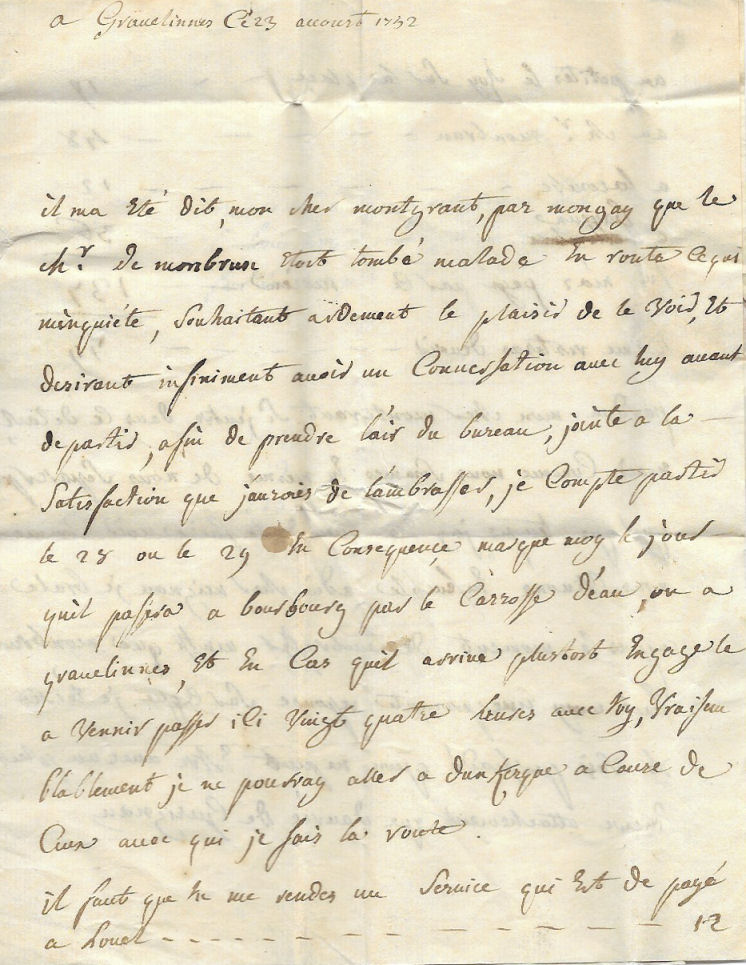 a Grauelinnes Ce 23 auoust 1752
il ma Eté dit, mon cher montgrant, par mongay que le
ch.r de monbrun Etoit tombé malade En route Ce qui
m'inquiéte, Souhaitant ardement le plaisir de le Voir, Et
desirant infiniment auoir un Conuersation auec luy auant
de partir, afin de prendre l'air du bureau, jointe a la
Satisfaction que jaurois de l'ambrasser, je Compte partir
le 28 ou le 29 En Consequençe marque moy le jour
quil passera a bourbourg par le Carrosse d'éau, ou a
grauelinnes, Et En Cas quil arriue plustost Engage le
a Vennir passer ici Vingt quatre heures auec moy, Vraisem
blablement je ne pourray aller a dunkerque a Cause de
Ceux auec qui je fais la route.
il faut que tu me rendes un Seruice qui Est de payé
a Louet - - - - - - - - - - 12